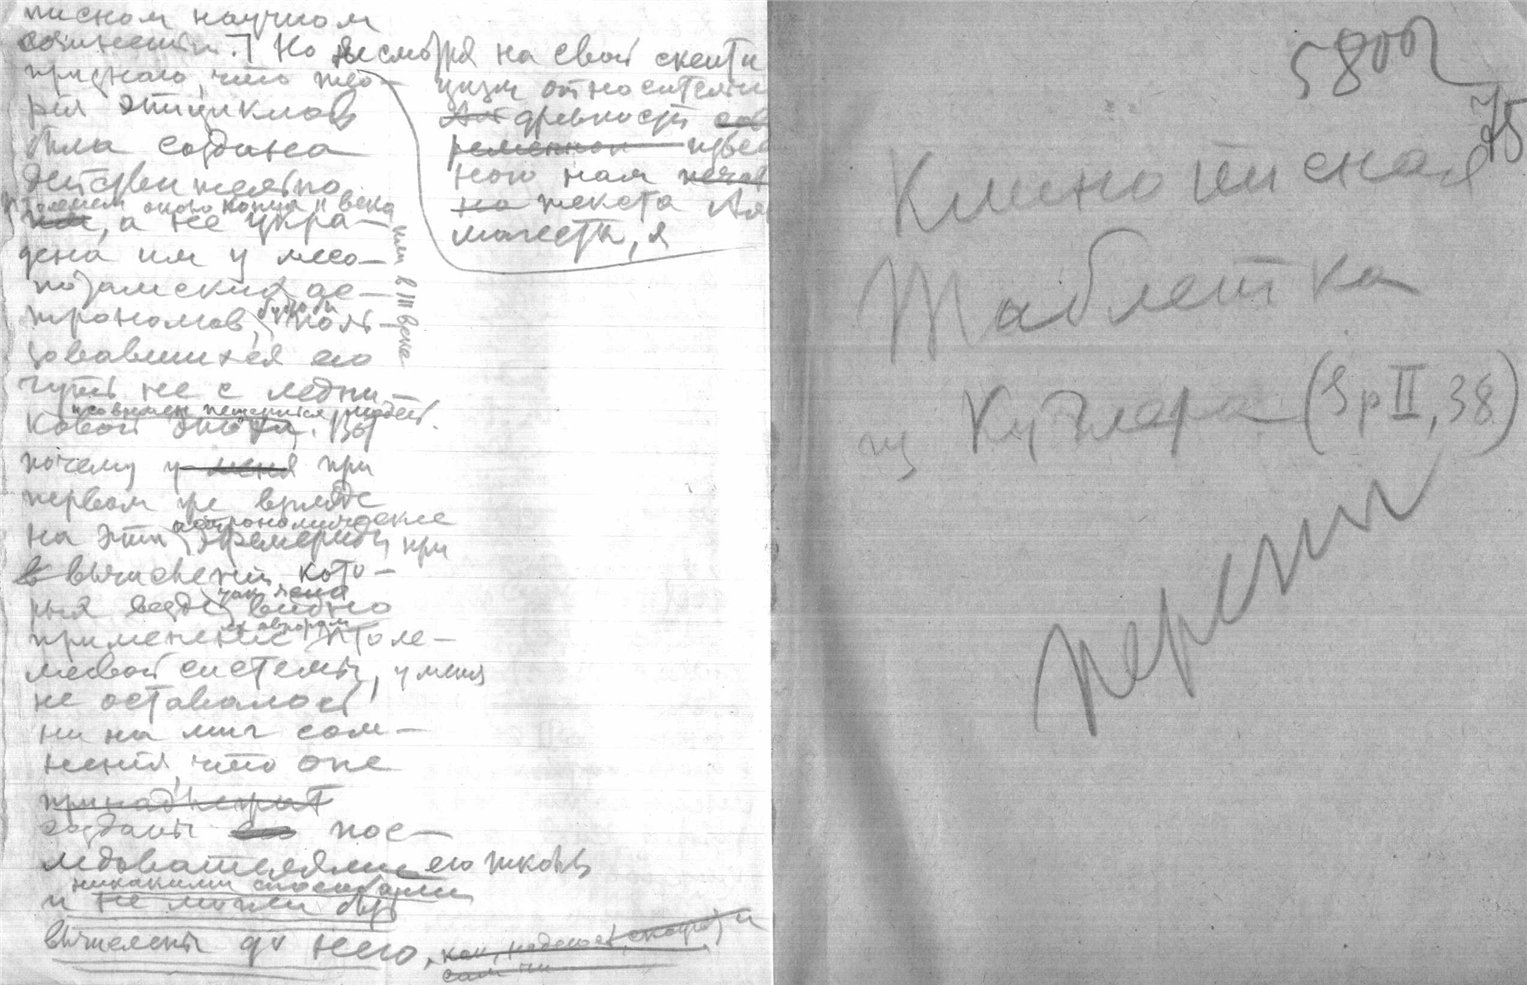 писном научном
сочинении.] Но несмотря на свой скепти
цизм относительн
древности сов
ременном извес
ного нам печат
на текста Ал
магесты, я
признаю, что тео-
рия эпициклов
была создана
действительно
Птолемеем около конца II века
им, а не укра-
дена им у месо-
потамских ас-
трономов, будто бы поль-
им в III веке
зовавшихся ею
чуть не с ледни-
ковой эпохи. Вот
почему у меня при
первом же взгляде
на эти астрономические эфемериды при
в вычислении кото-
рых везде видно
применение их автором Птоле-
меевой системы, у меня
не оставалось
ни на миг сом-
нения, что оне
принадлежат
созданы его пос-
ледователями его школы
никакими способами
и не могли быть
вычислены до него, как, надеюсь,
сам
58002
75
Клинописная
Таблетка
из Куглера (Sp II, 38)